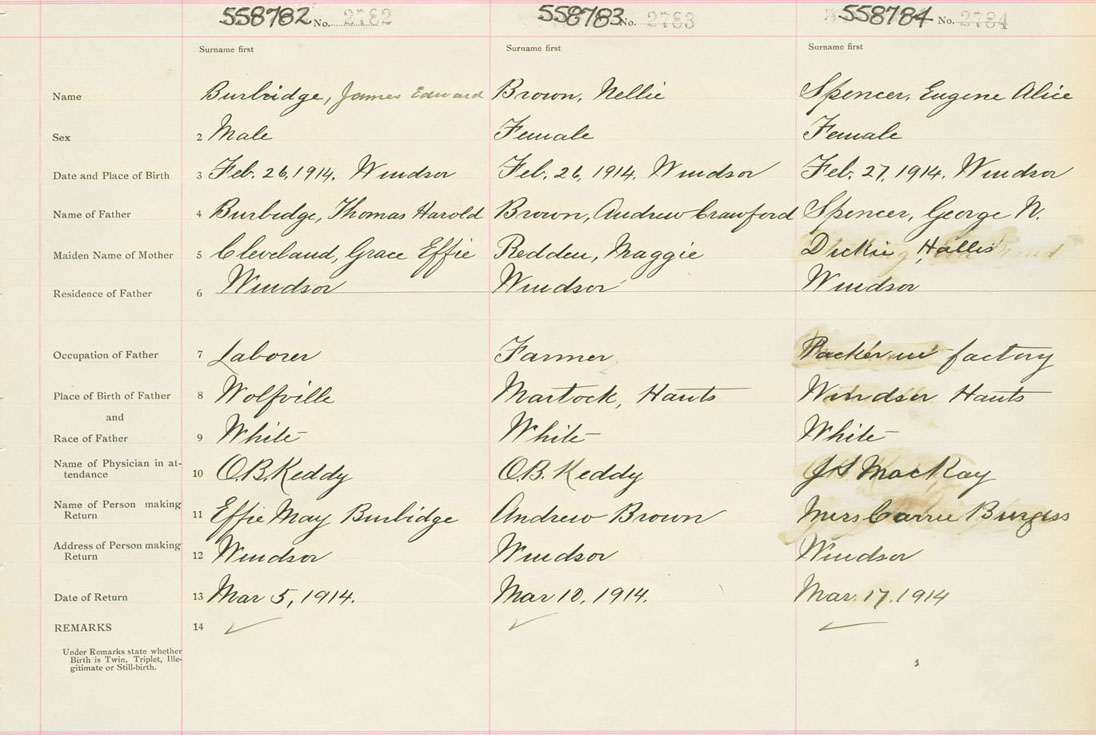 558782 No. 2782 558783 No. 2783 558784 No. 2784
Surname first Surname first Surname first
Name Burbidge, James Edward Brown, Nellie Spencer, Eugene Alice
Sex 2 Male Female Female
Date and Place of Birth 3 Feb. 26, 1914, Windsor Feb. 26, 1914, Windsor Feb. 27, 1914, Windsor
Name of Father 4 Burbidge, Thomas Harold Brown, Andrew Crawford Spencer, George N.
Maiden Name of Mother 5 Cleveland, Grace Effie Redden, Maggie Dickie, Hallis
Residence of Father 6 Windsor Windsor Windsor
Occupation of Father 7 Laborer Farmer Packer in factory
Place of Birth of Father 8 Wolfville Martock, Hants Windsor Hants
and
Race of Father 9 White White White
Name of Physician in at-
tendance 10 O.B. Keddy O.B. Keddy MacKay
Name of Person making
Return 11 Effie May Burbidge Andrew Brown Mrs Carrie Burgess
Address of Person making
Return 12 Windsor Windsor Windsor
Date of Return 13 Mar 5, 1914. Mar 10, 1914. Mar. 17, 1914
REMARKS 14
Under Remarks state whether
Birth is Twin, Triplet, Ille-
gitimate or Still-birth.